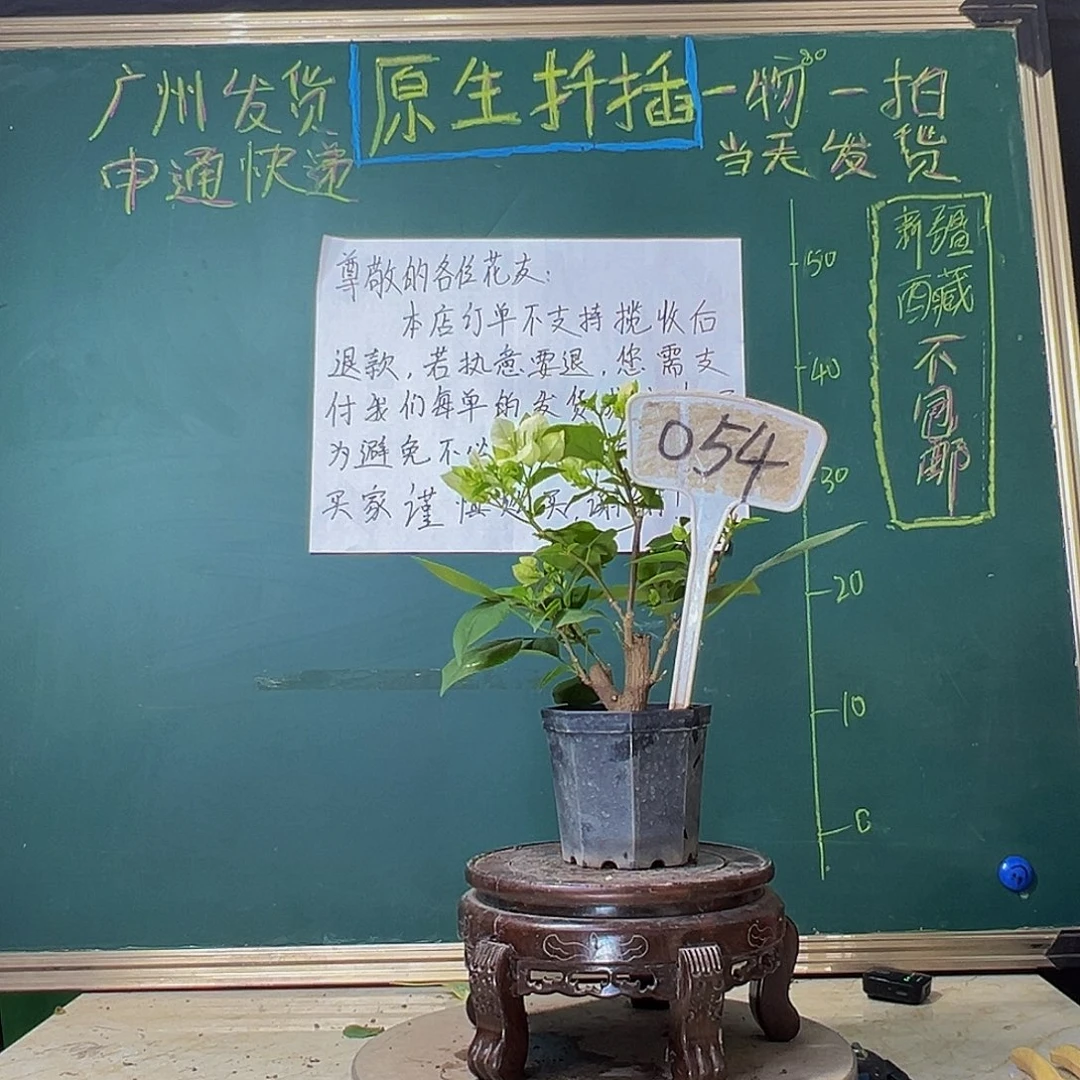 广州发货
申通快递
原生扦插
一物一拍
当天发货
新疆
西藏
不
包
邮
50
40
30
20
10
0
尊敬的各位花友：
本店订单不支持揽收后
退款，若执意要退，您需支
付我们每单的发货
为避免不必
买家谨慎购买，谢谢！
054